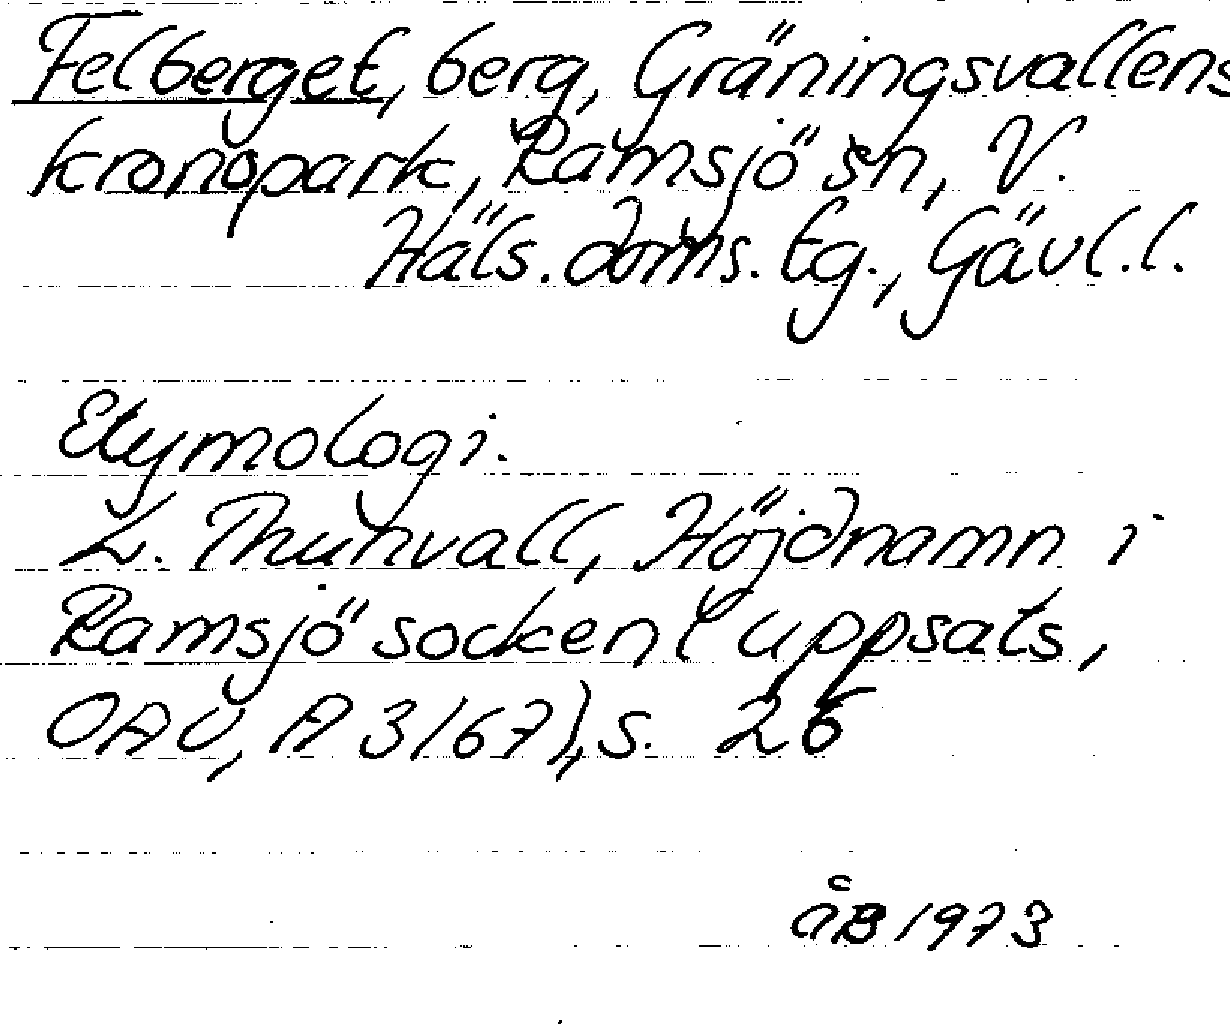 Felberget, berg, Gräningsvallens
kronopark, Ramsjö sn, V.
Häls. doms. tg., Gävl. l.
Etymologi.
L. Thunvall, Höjdnamn i
Ramsjö socken (uppsats,
OAU, A 3167), s. 26
ÅB 1973